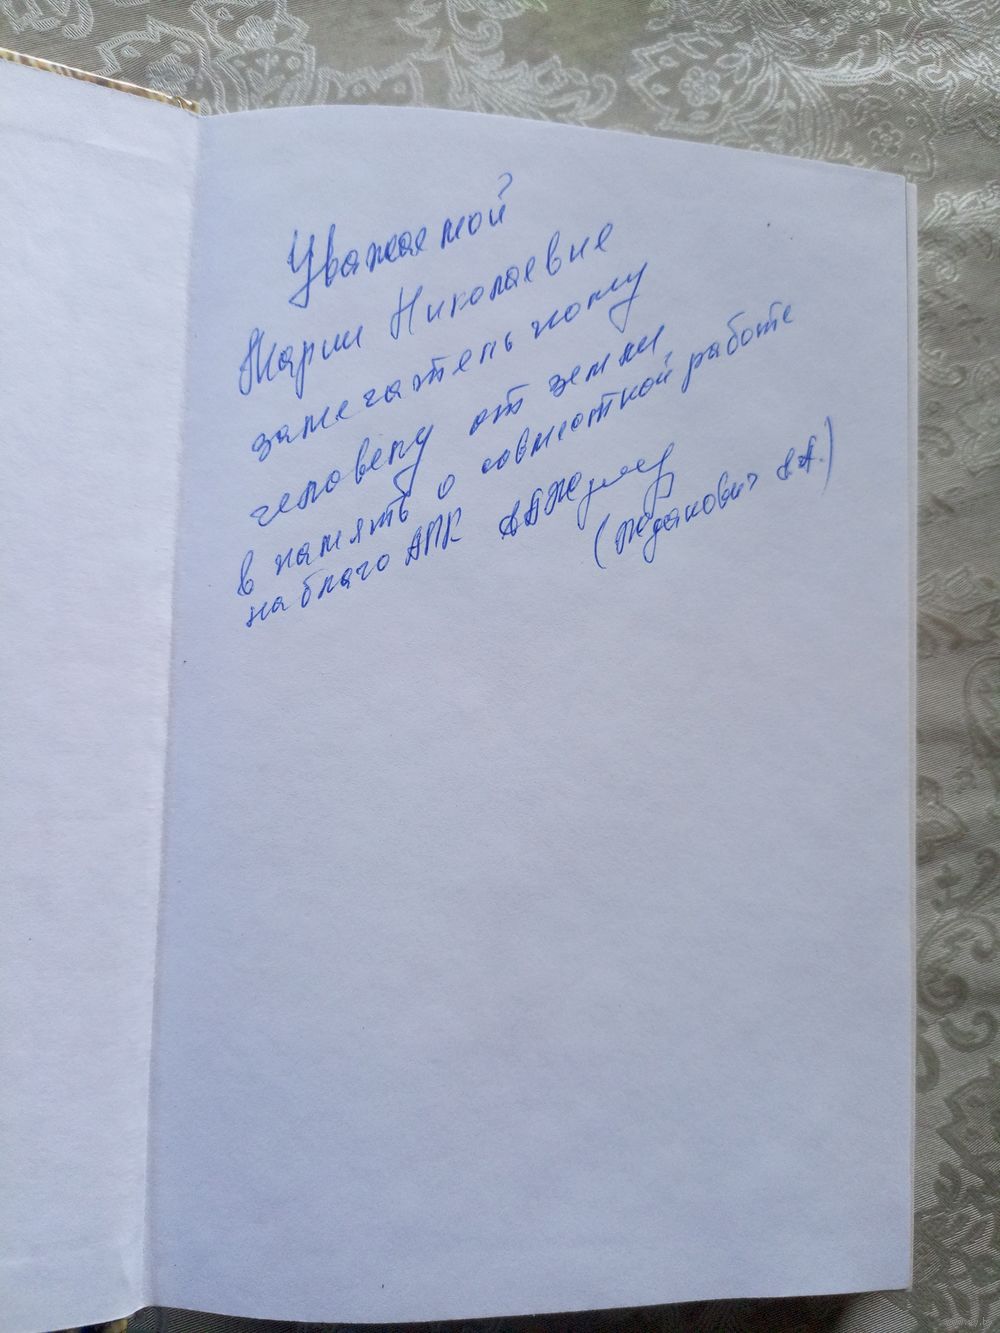 Уважаемой
Марии Николаевне
замечательному
человеку от земли
в память о совместной работе
на благо АПК